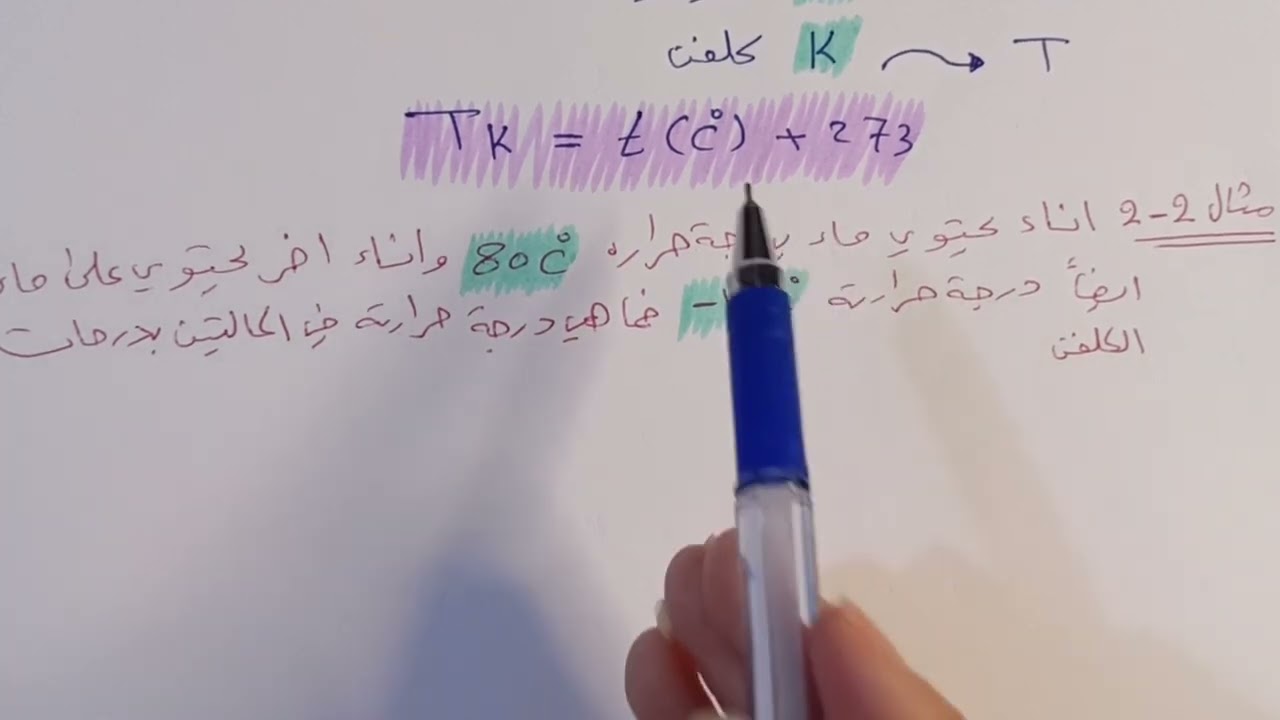 K كلفن T
TK = t (C°) + 273
مثال 2-2 اناء يحتوي ماء حراره 80C° واناء اخر يحتوي على ماء
ايضاً درجة حرارية - فما هي درجة حرارية في الحالتين بدرجات
الكلفن